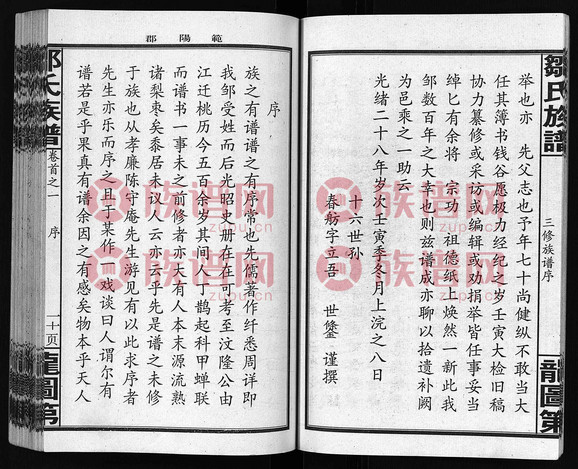 鄒氏族譜
三修族谱序
龍圖第
举也亦 先父志也予年七十尚健纵不敢当大
任其薄书钱谷愿极力经纪之岁壬寅大检旧稿
协力纂修或采访或编辑或劝捐举皆任事妥当
绰匕有余将 宗功 祖德纸上焕然一新此我
邹数百年之大幸也则兹谱成亦聊以拾遗补阙
为邑乘之一助云
光绪二十八年岁次壬寅季冬月上浣之八日
十六世孙
春舫字立吾 世鎣 谨撰
範陽郡
序
族之有谱谱之有序常也先儒著作纤悉周详即
我邹受姓而后光昭史册在在可考至汶隆公由
江迁桃历今五百余岁其间人丁鹊起科甲蝉联
而谱书一事未之前修者亦夫有人本末源流熟
诸梨枣矣黍居未议人云亦云乎先是谱之未修
于族也从孝廉陈守庵先生游见有以此求序者
先生亦乐而序之且于某作 戏谈曰人谓尔有
谱若是乎果真有谱余因之有感矣物本乎天人
邹氏族谱
卷首之一
序
一十页
龍圖第
族谱网
zupu.cn
族谱网
zupu.cn
族谱网
zupu.cn
族谱网
zupu.cn